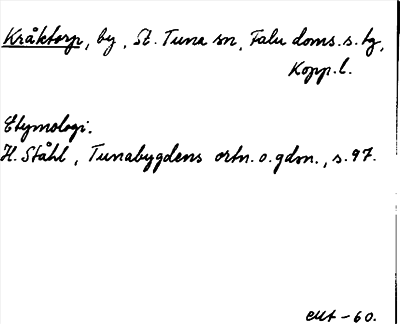 Kråktorp, by, St. Tuna sn, Falu doms. s. tg,
Kopp. l.
Etymologi.
H. Ståhl, Tunabygdens ortn. o. gdn., s. 97.
-60.